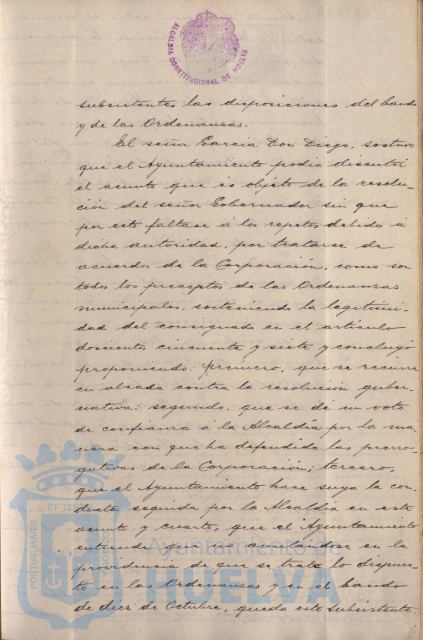 ALCALDIA CONSTITUCIONAL DE HUELVA
subsistentes las disposiciones del bando
y de las Ordenanzas.
El señor Garcia Don Diego, sostuvo
que el Ayuntamiento podia discutir
el asunto que es objeto de la resolu-
ción del señor Gobernador sin que
por esto faltase á los repetos debidos á
dicha autoridad, por tratarse de
acuerdos de la Corporación, como son
todos los preceptos de las Ordenanzas
municipales, sosteniendo la legitimi-
dad del consignado en el articulo
doscientos cincuenta y siete y concluyó
proponiendo: primero, que se recurra
en alzada contra la resolución guber-
nativa; segundo, que se dé un voto
de confianza á la Alcaldia por la ma-
nera con que ha defendido las prerro-
gativas de la Corporación; tercero,
que el Ayuntamiento hace suya la con-
ducta seguida por la Alcaldia en este
asunto y cuarto, que el Ayuntamiento
entiende que anulandose en la
providencia de que se trata lo dispues-
to en las Ordenanzas y en el bando
de diez de Octubre, queda este subsistente
PORTUS MARIS ET TERRÆ
Ayuntamiento de
HUELVA